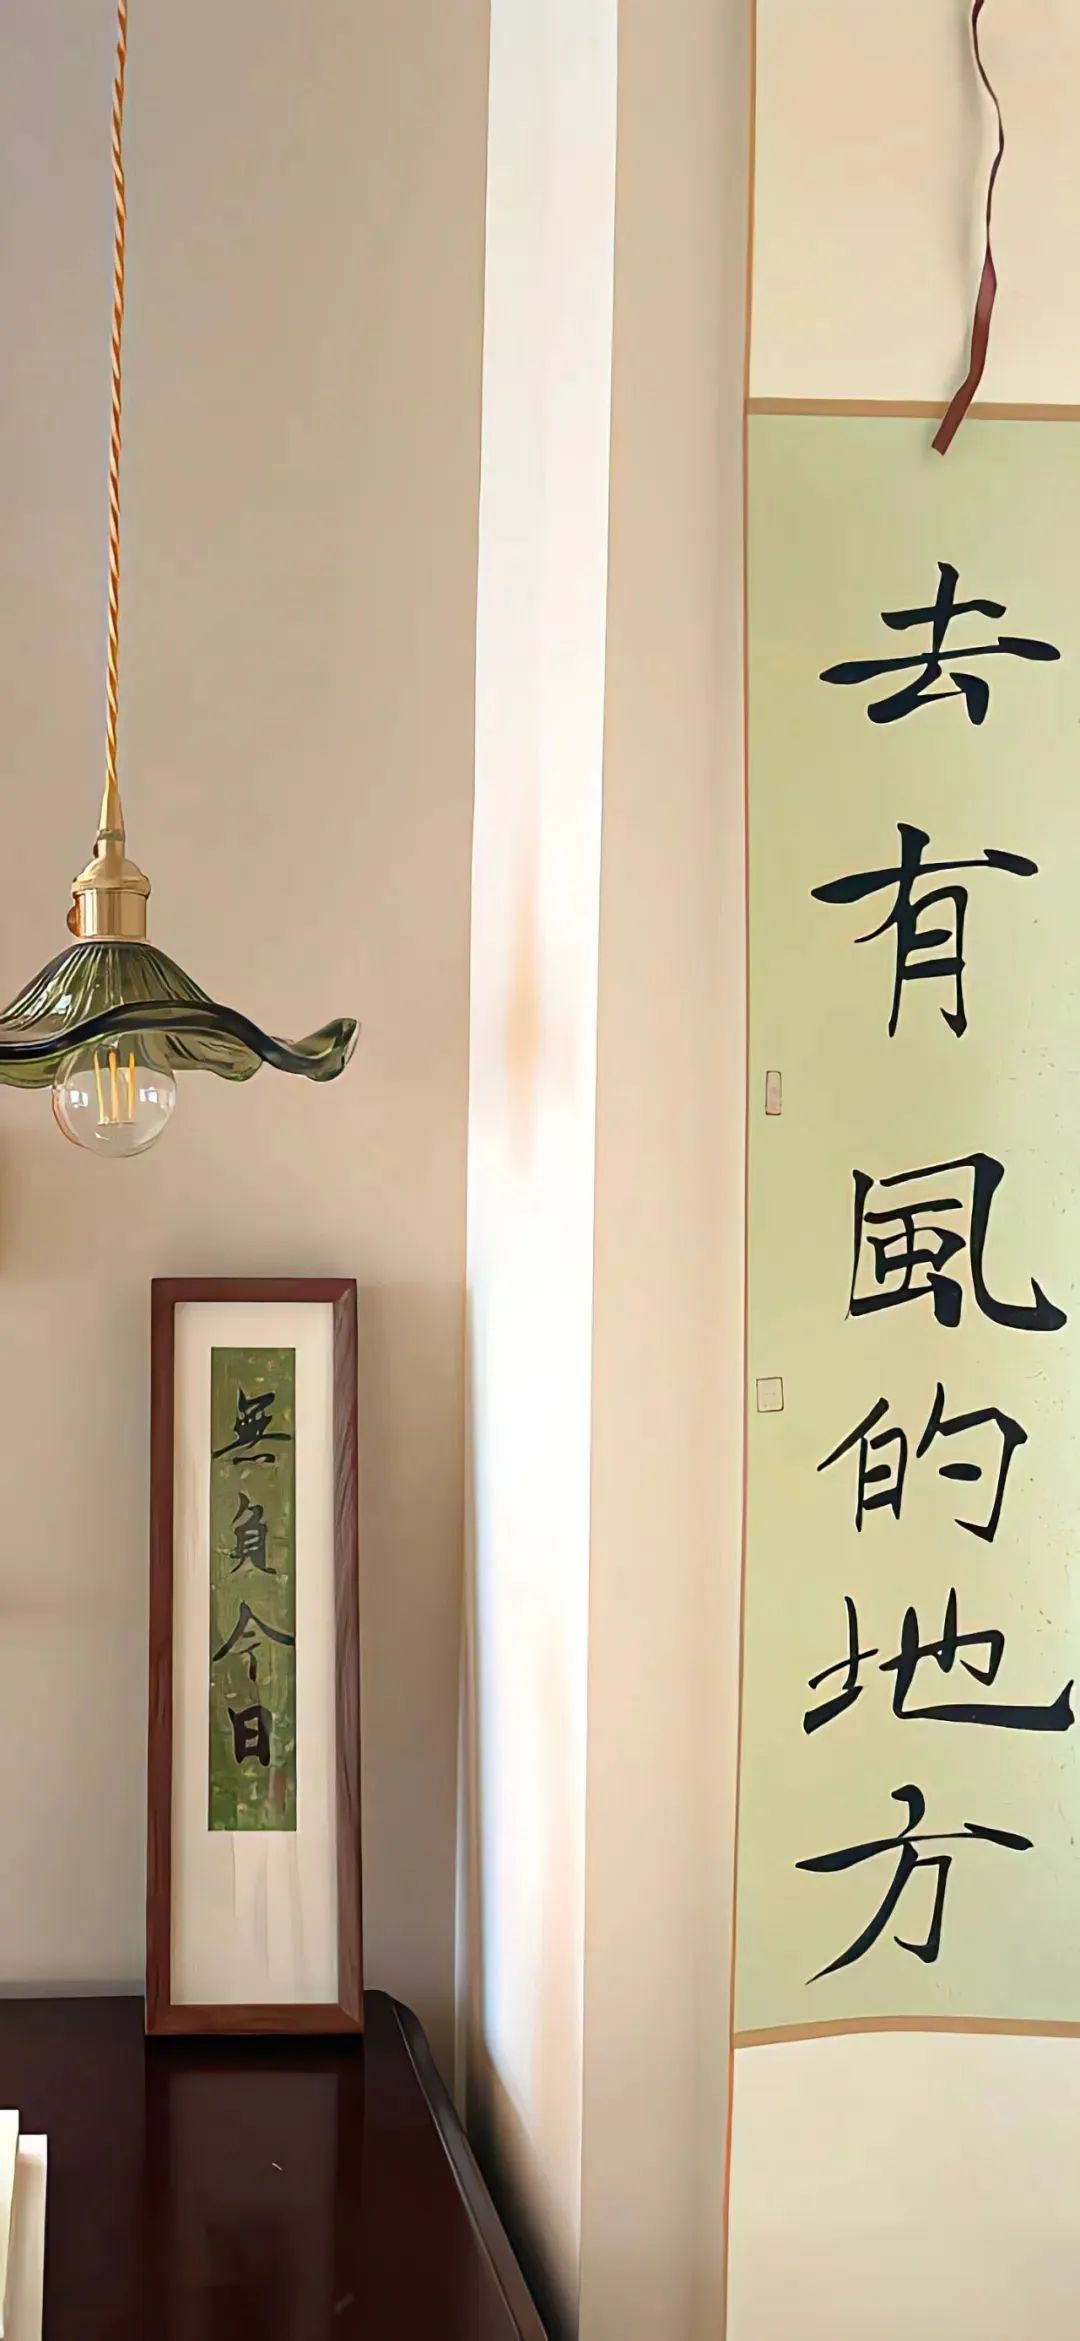 去有風的地方
無負今日